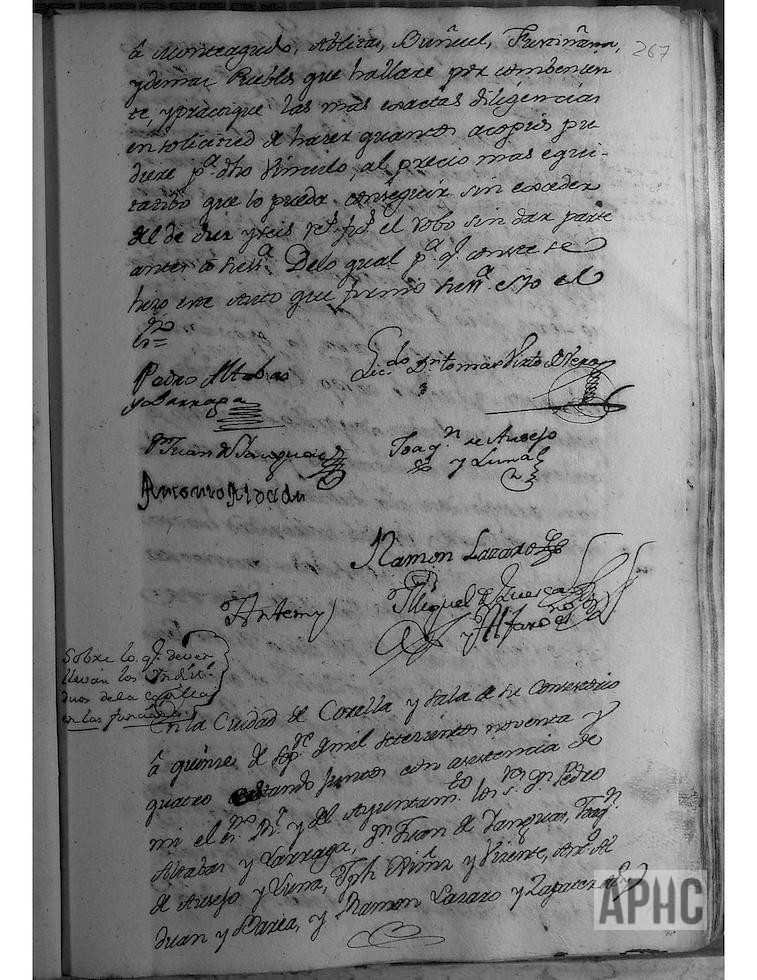 267
á Monteagudo, Ablitas, Buñuel, Fustiñana,
y demas Pueblos que hallare por combenien
te, y practique las mas exactas diligencias
en solicitud de hazer quantos acopios pu
diere pª dho Vinculo, al precio mas equi-
tatibo que lo pueda conseguir sin exceder
del de diez y seis rs. fs. el robo sin dar parte
antes á su Sª. De lo qual pª q.e conste se
hizo este Auto que firmó su Sª. e Yo el
ss.no=
Pedro Altabas
y Larraga
Lic.do D.n tomas Virto de Vera
D.n Juan de Sanguas
Joaq.n de Ausejo
y Luna
Antonio Alduan
Ramon Lazaro
Antemy
Miguel de Huersa
y Alfaro
Sobre lo q.e deven
llevar los Indivi
duos de la capilla
en las funciones
En la Ciudad de Corella y Sala de su Consistorio
á quinze de Sep.re de mil setecientos noventa y
quatro estando juntos con asistencia de
mi el ss.no R.l y del Ayuntam.to los S.res D.n Pedro
Altabas y Larraga, D.n Juan de Sanguas, Joaq.n
de Ausejo y Luna, Jph y Virto, Ant.o Al
duan y Barea, y Ramon Lazaro y Zapatería
APHC